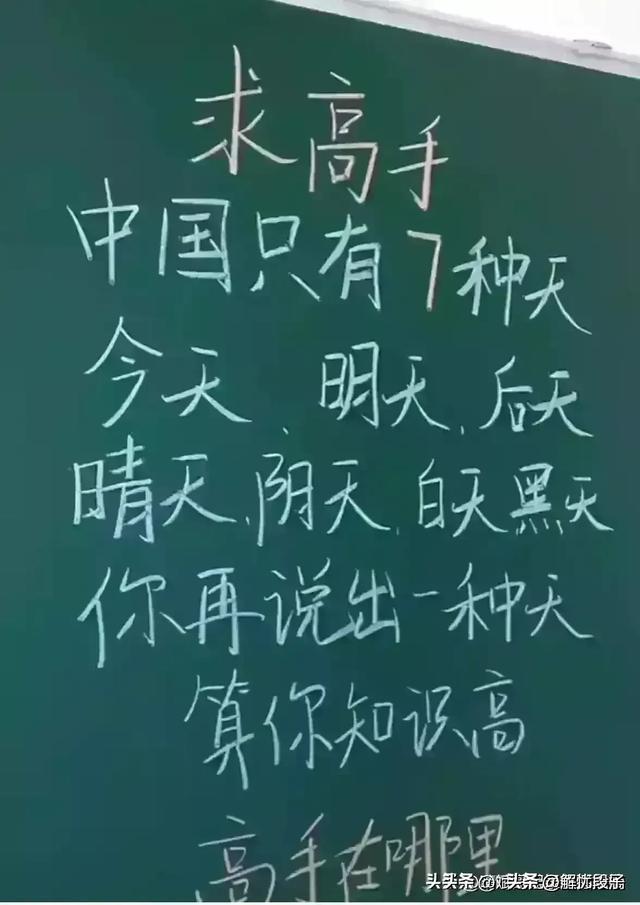 求高手
中国只有7种天
今天、明天、后天
晴天、阴天、白天黑天
你再说出一种天
算你知识高
高手在哪里
头条 @解忧段子